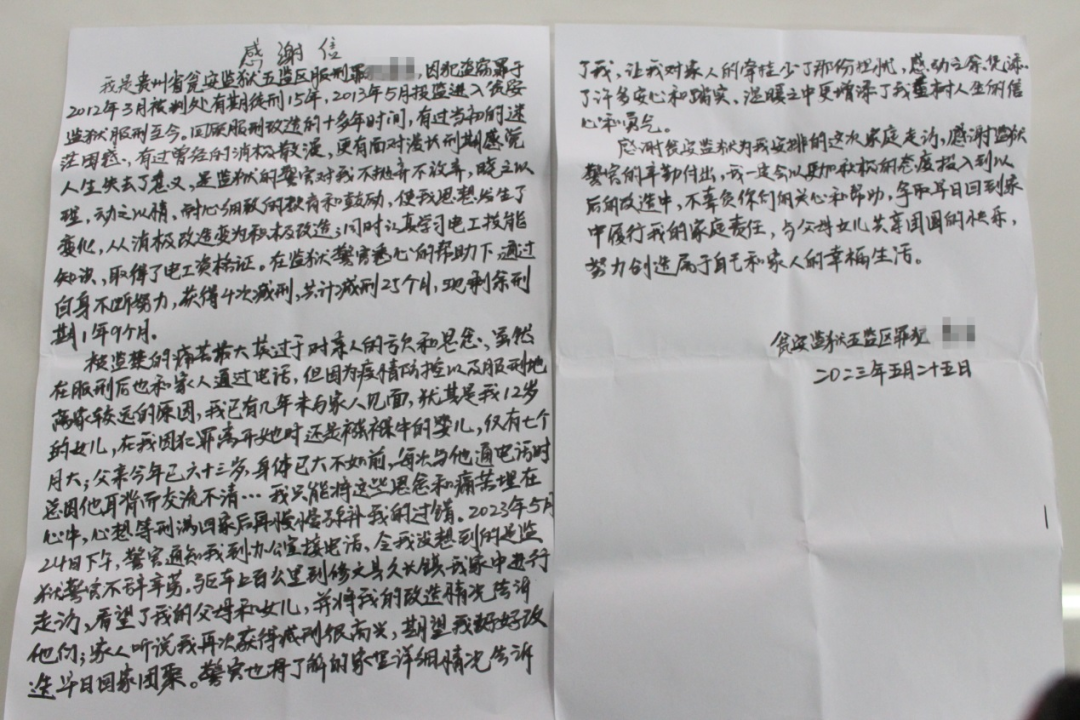 感谢信
我是贵州省瓮安监狱五监区服刑罪，因犯盗窃罪于
2012年3月被判处有期徒刑15年，2013年5月投监进入瓮安
监狱服刑至今。回顾服刑改造的十多年时间，有过当初的迷
茫困惑，有过曾经的消极散漫，更有面对漫长刑期感觉
人生失去了意义，是监狱的警官对我不抛弃不放弃，晓之以
理，动之以情，耐心细致的教育和鼓励，使我思想发生了
变化，从消极改造变为积极改造；同时认真学习电工技能
知识，取得了电工资格证。在监狱警官悉心的帮助下，通过
自身不断努力，获得4次减刑，共计减刑25个月，现剩余刑
期1年9个月。
被监禁的痛苦最大莫过于对亲人的亏欠和思念，虽然
在服刑后也和家人通过电话，但因为疫情防控以及服刑地
离家较远的原因，我已有几年未与家人见面，尤其是我12岁
的女儿，在我因犯罪离开她时还是襁褓中的婴儿，仅有七个
月大；父亲今年已六十三岁，身体已大不如前，每次与他通电话时
总因他耳背而交流不清…我只能将这些思念和痛苦埋在
心中，心想等刑满回家后再慢慢弥补我的过错。2023年5月
24日下午，警官通知我到办公室接电话，令我没想到的是监
狱警官不辞辛劳，驱车上百公里到修文县久长镇我家中进行
走访，看望了我的父母和女儿，并将我的改造情况告诉
他们；家人听说我再次获得减刑很高兴，期望我好好改
造早日回家团聚。警官也将了解的家里详细情况告诉
了我，让我对家人的牵挂少了那份担忧，感动之余凭添
了许多安心和踏实、温暖之中更增添了我重树人生的信
心和勇气。
感谢瓮安监狱为我安排的这次家庭走访，感谢监狱
警官的辛勤付出，我一定会以更加积极的态度投入到以
后的改造中，不辜负你们的关心和帮助，争取早日回到家
中履行我的家庭责任，与父母女儿共享团圆的快乐，
努力创造属于自己和家人的幸福生活。
瓮安监狱五监区罪犯
二〇二三年五月二十五日